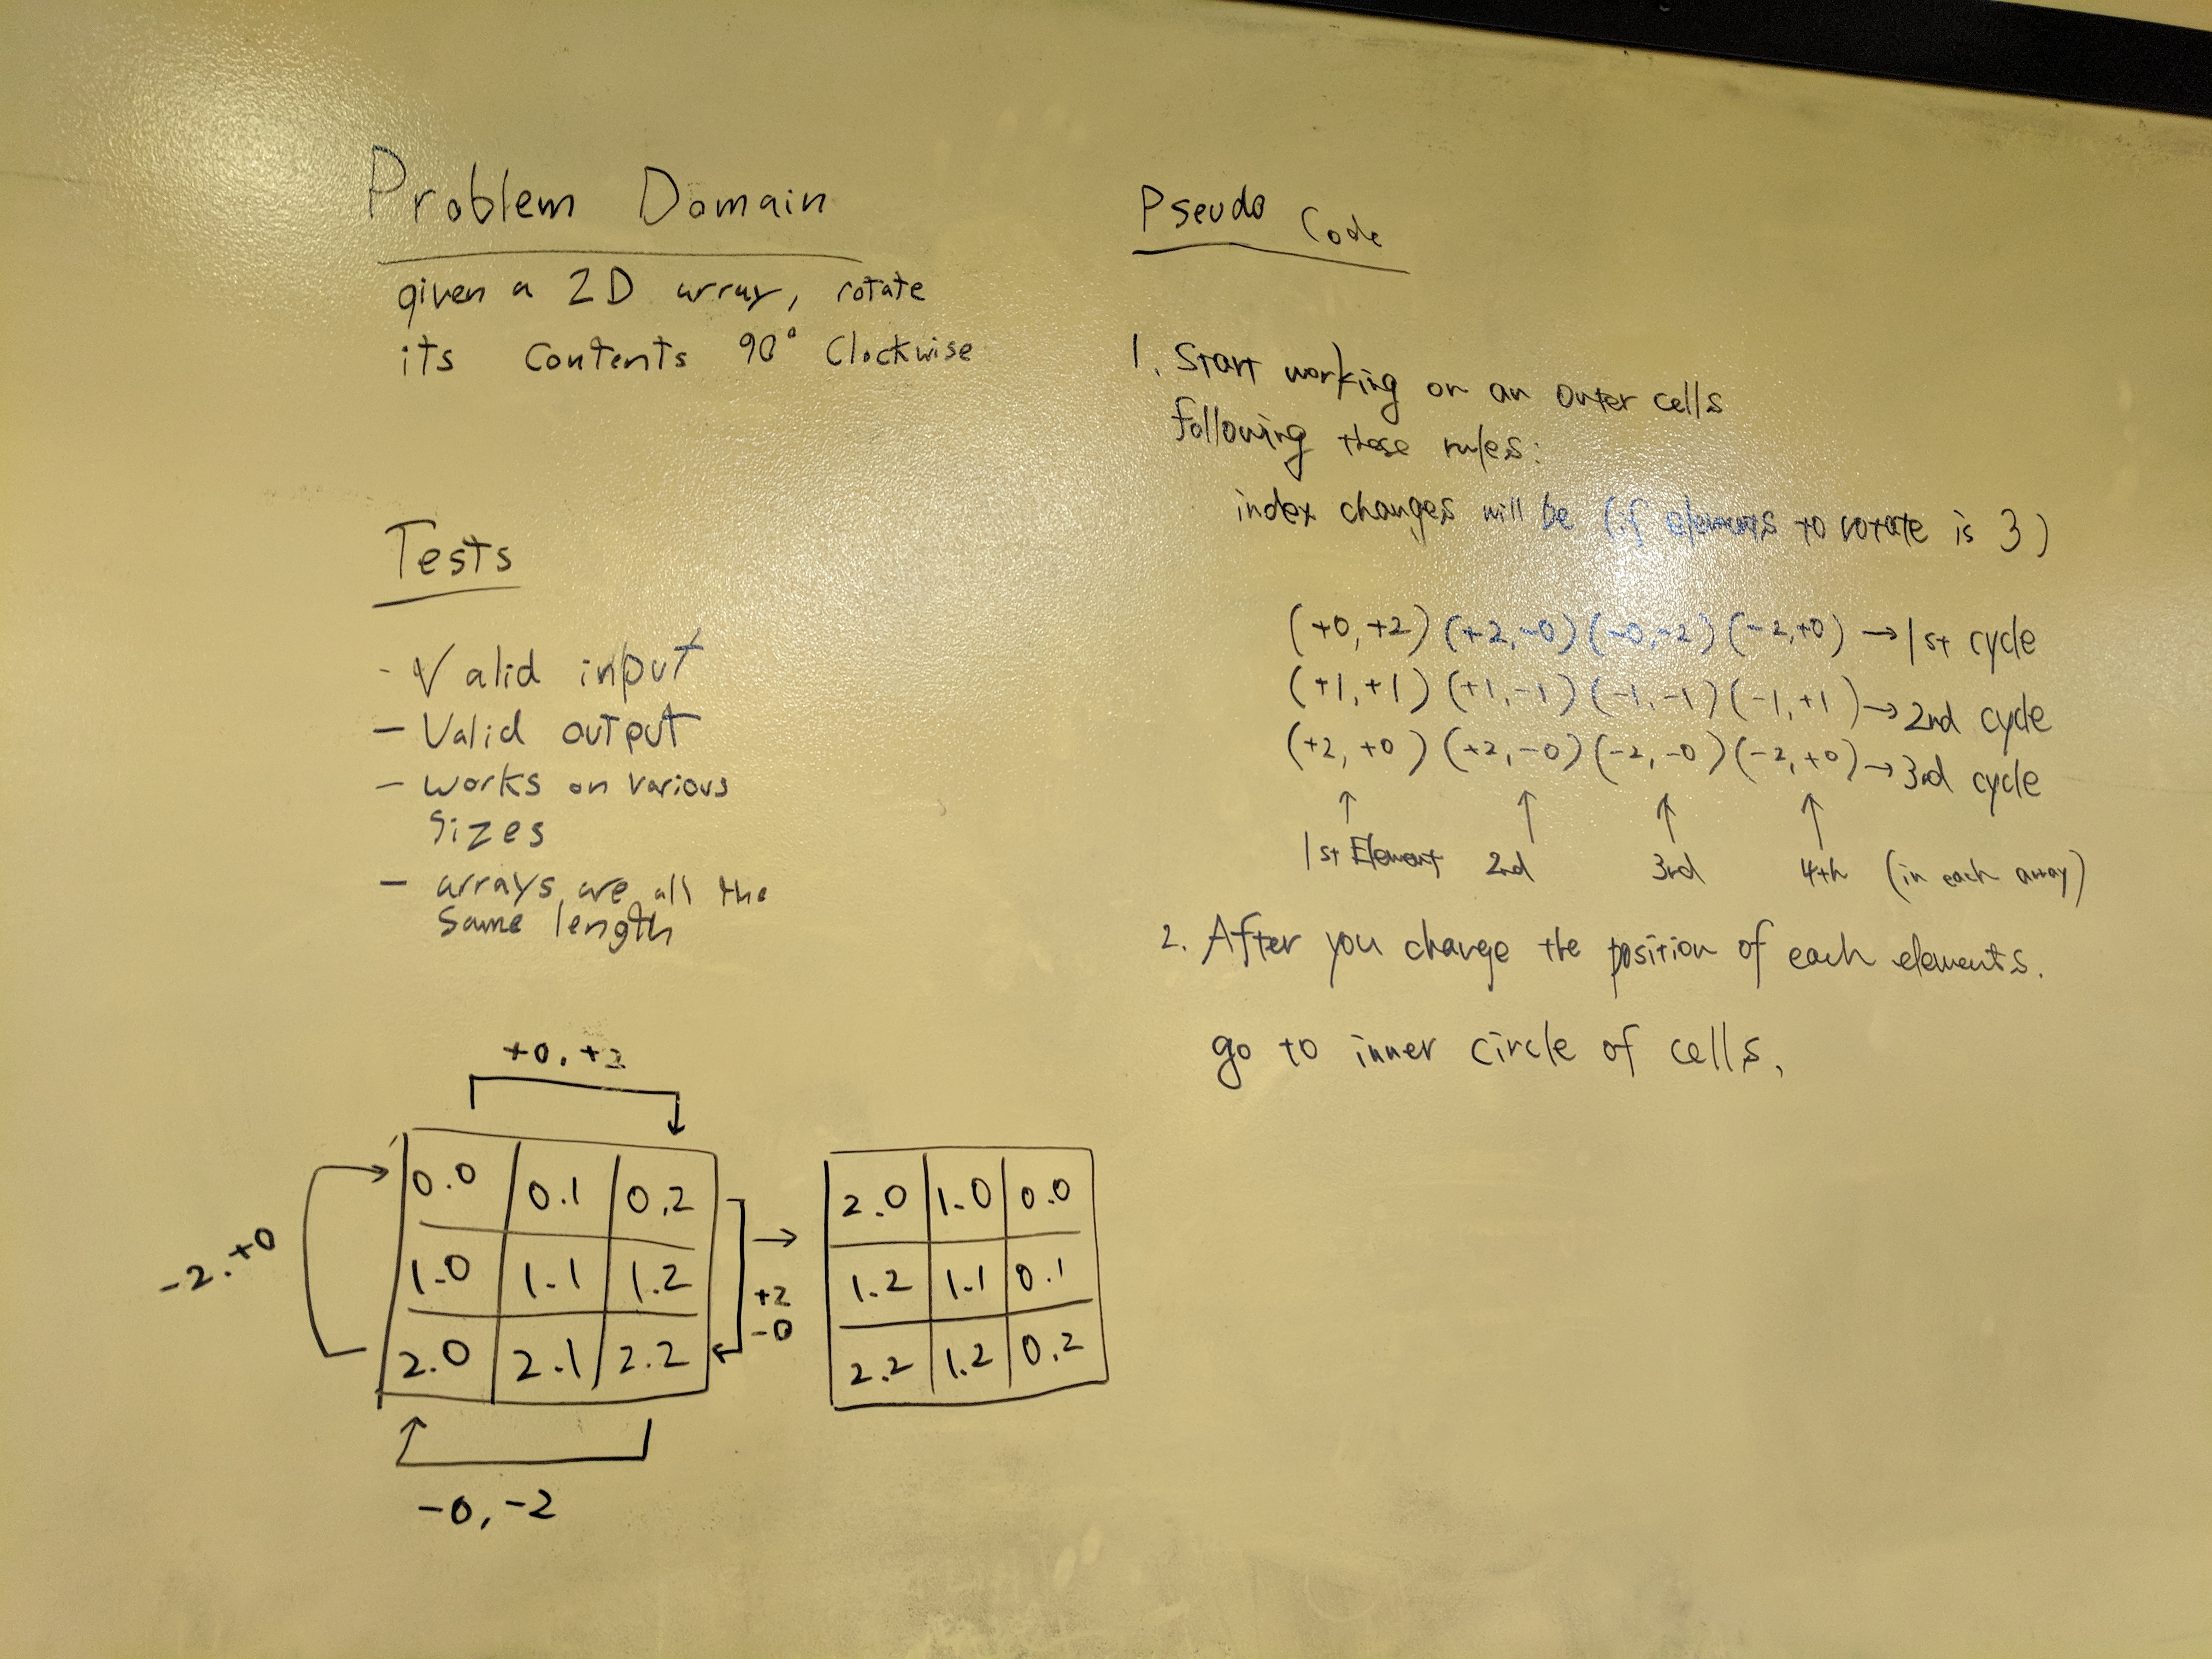 Problem Domain
given a 2D array, rotate
its contents 90° Clockwise
Tests
- Valid input
- Valid output
- works on various
sizes
- arrays are all the
same length
+0, +2
-2. +0
0.0 0.1 0.2
1.0 1.1 1.2
2.0 2.1 2.2
→
+2
-0
-0, -2
2.0 1.0 0.0
1.2 1.1 0.1
2.2 1.2 0.2
Pseudo Code
1. Start working on an outer cells
following these rules:
index changes will be (if elements to rotate is 3)
(+0, +2) (+2, -0) (-0, -2) (-2, +0) → 1st cycle
(+1, +1) (+1, -1) (-1, -1) (-1, +1) → 2nd cycle
(+2, +0) (+2, -0) (-2, -0) (-2, +0) → 3rd cycle
↑ ↑ ↑ ↑
1st Element 2nd 3rd 4th (in each array)
2. After you change the position of each elements.
go to inner circle of cells.